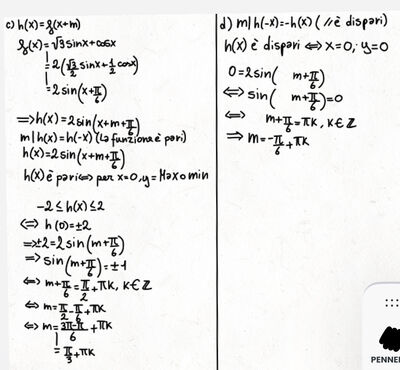 c) h(x)=g(x+m)
g(x)=√3sinx+cosx
=2(√3/2 sinx+1/2 cosx)
=2sin(x+π/6)
⇒h(x)=2sin(x+m+π/6)
m|h(x)=h(-x) (la funzione è pari)
h(x)=2sin(x+m+π/6)
h(x) è pari⇔ per x=0,y=Max o min
-2≤h(x)≤2
⇔ h(0)=±2
⇒±2=2sin(m+π/6)
⇒ sin(m+π/6)=±1
⇔ m+π/6=π/2+πk, k∈ℤ
⇔ m=π/2-π/6+πk
⇔ m=3π-π/6+πk
=π/3+πk
d) m|h(-x)=-h(x) (// è dispari)
h(x) è dispari ⇔ x=0; y=0
0=2sin( m+π/6)
⇔ sin( m+π/6)=0
⇔ m+π/6=πk, k∈ℤ
⇒ m=-π/6+πk
PENNE